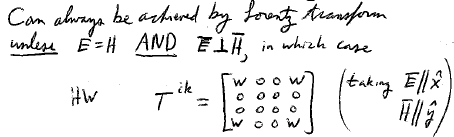 Can always be achieved by Lorentz transform
unless E=H AND E̅⊥H̅, in which case
HW T^{ik} = [W 0 0 W; 0 0 0 0; 0 0 0 0; W 0 0 W] (taking E̅//x̂ H̅//ŷ)